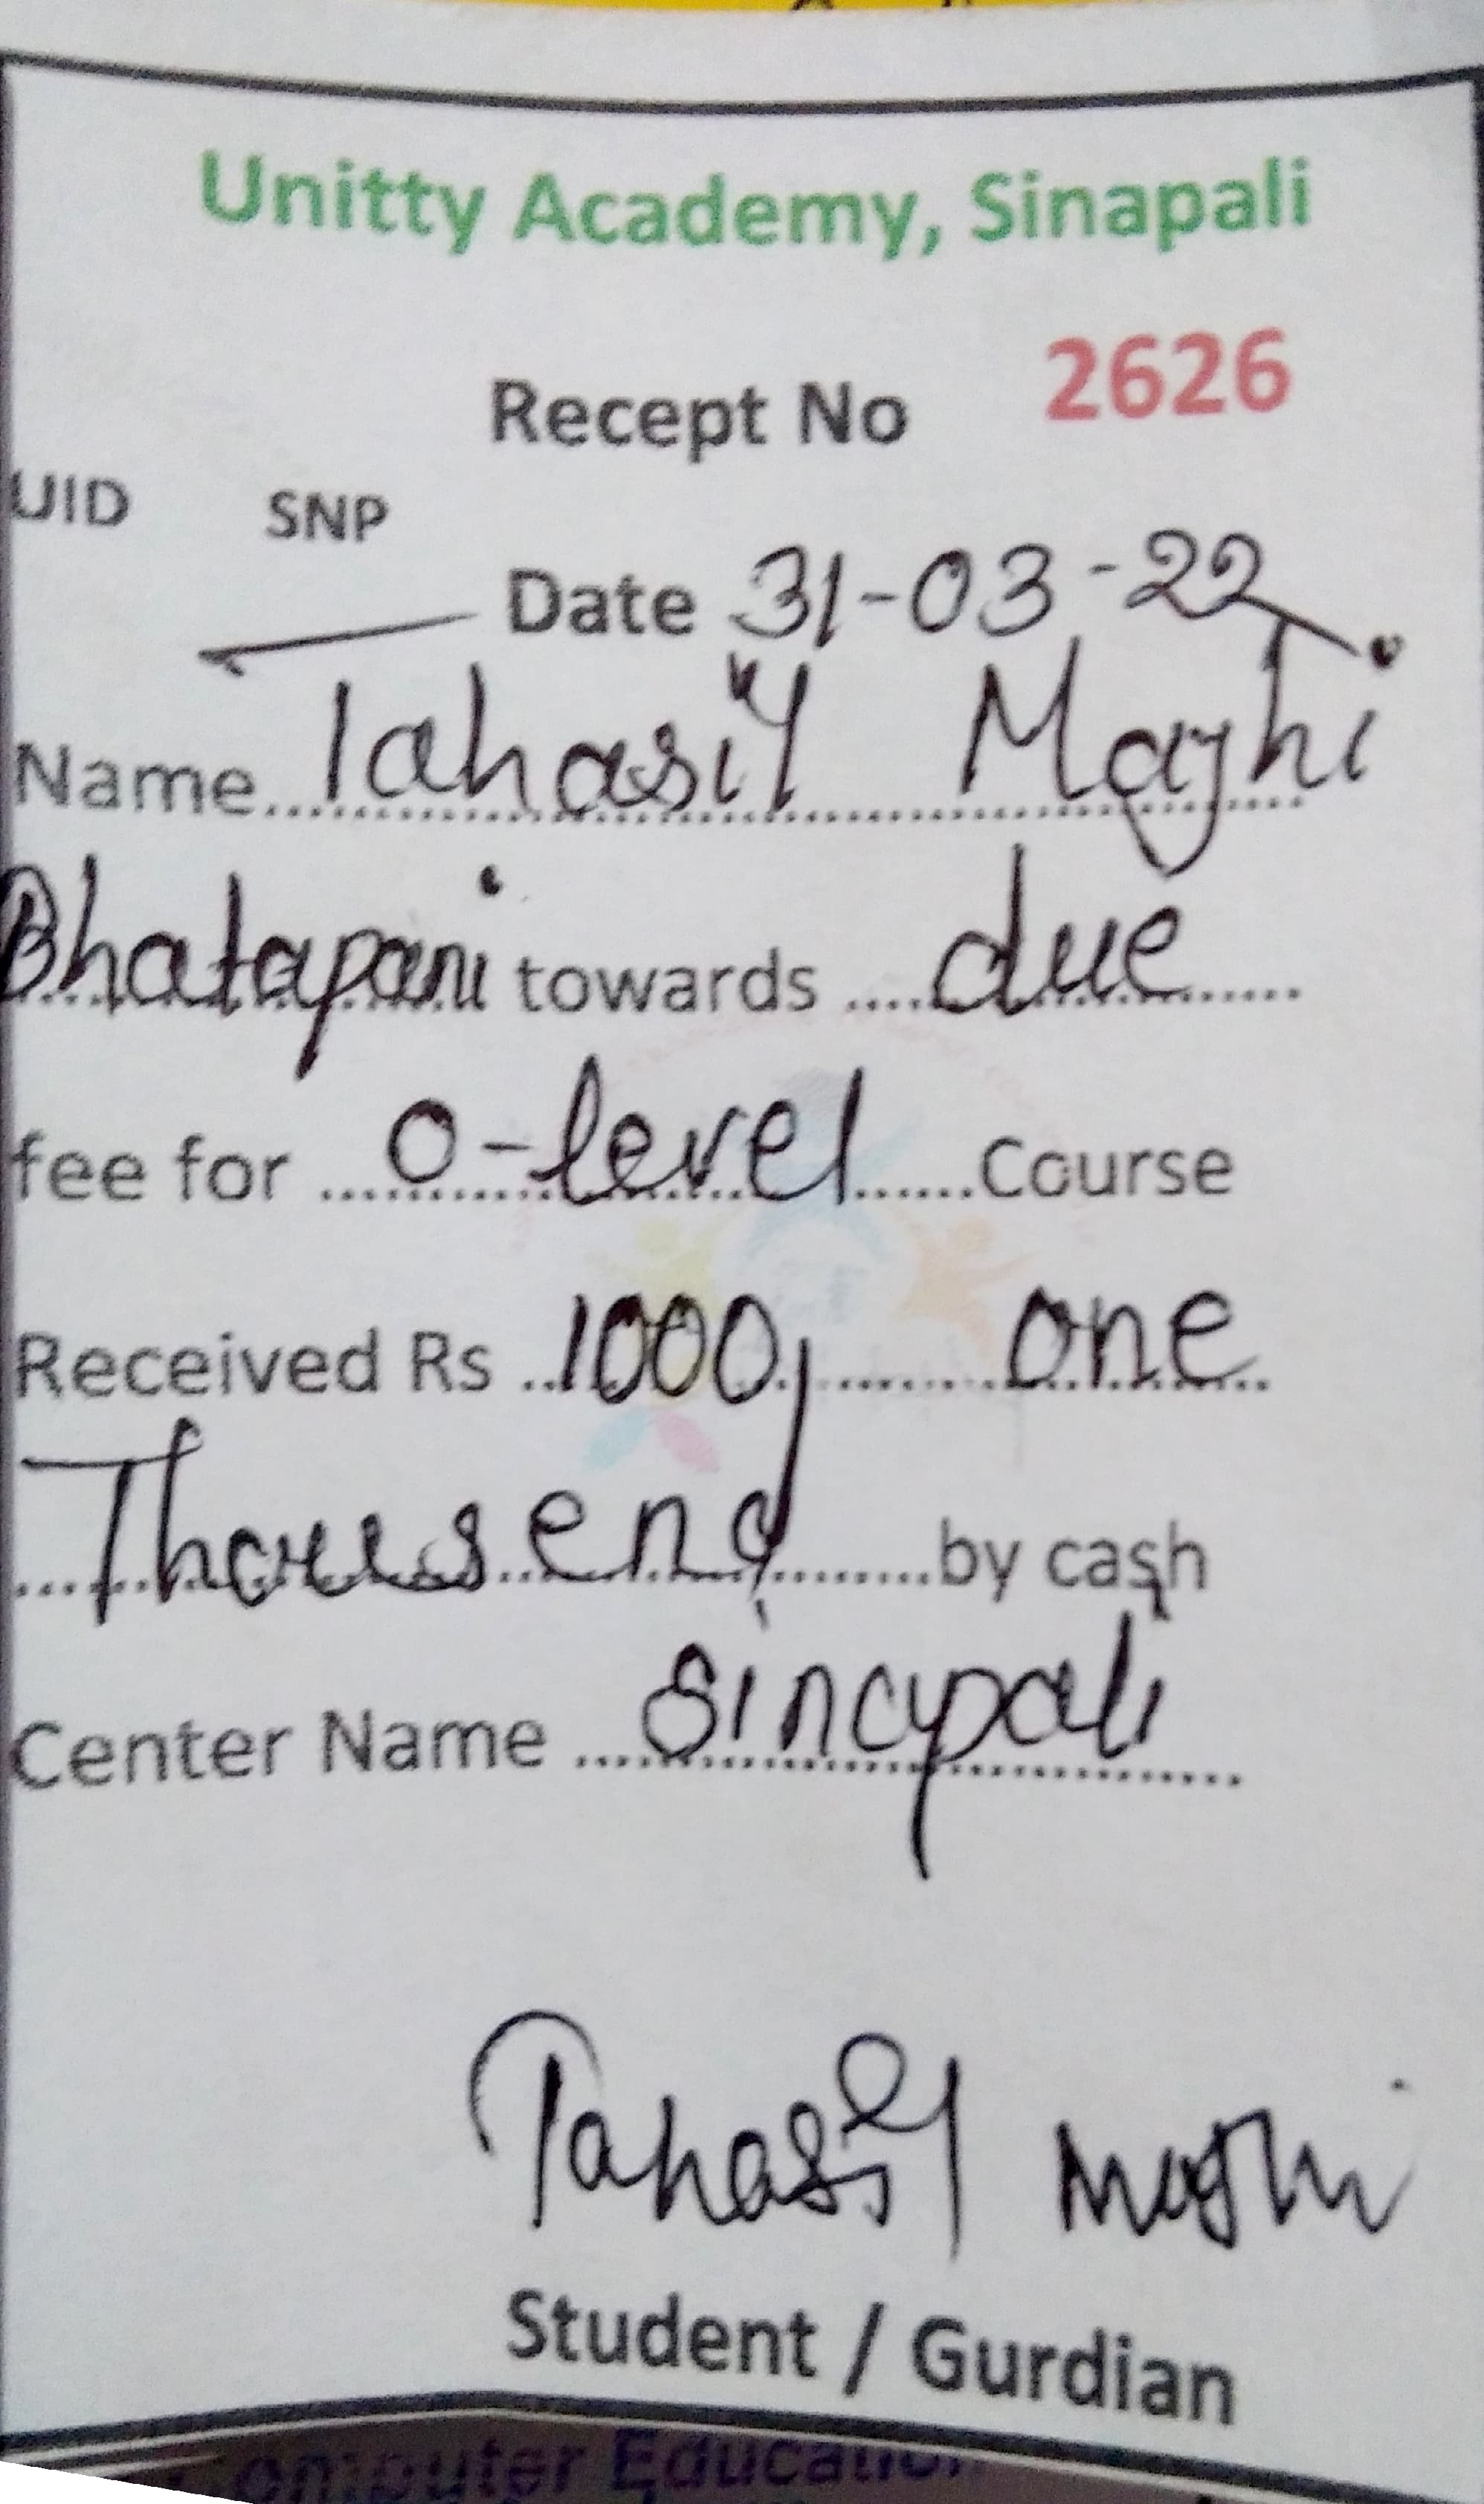 Unitty Academy, Sinapali
Recept No 2626
UID SNP
Date 31-03-22
Name Tahasil Majhi
Bhatapani towards due
fee for O-level Course
Received Rs 1000/ one
Thousend by cash
Center Name Sinapali
Tahasil Majhi
Student / Gurdian
Computer Education